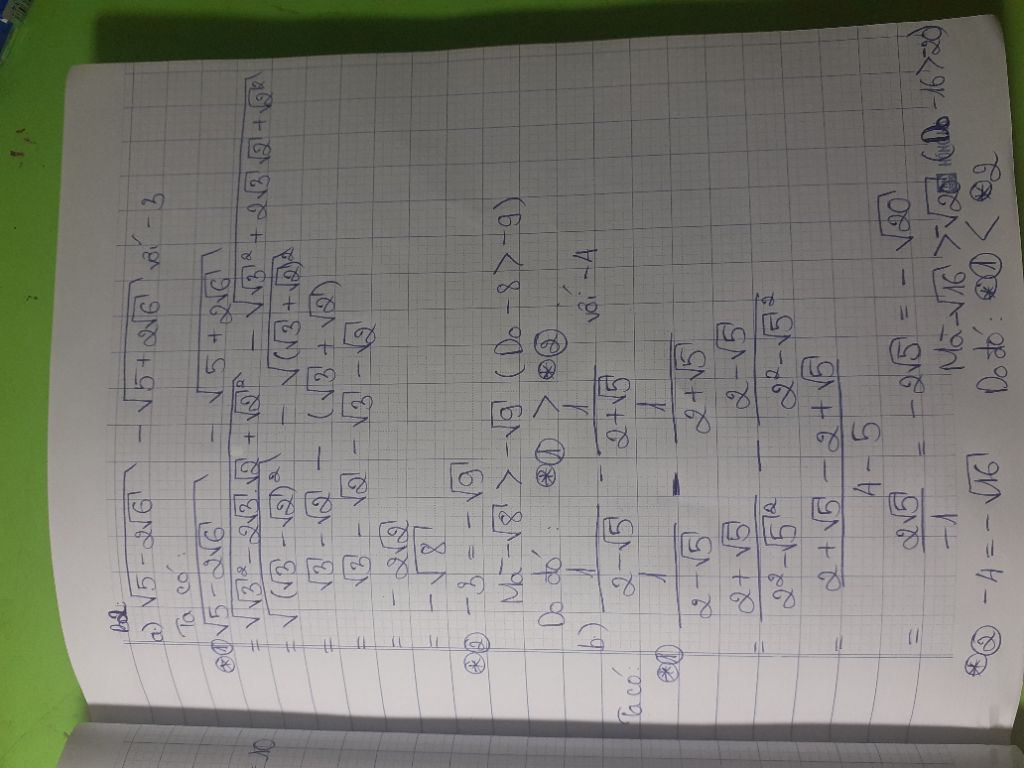 b2:
a) √5 - 2√6 - √5 + 2√6 với - 3
Ta có:
⊛1 √5 - 2√6 - √5 + 2√6
= √√3² - 2√3 √2 + √2² - √√3² + 2√3 √2 + √2²
= √(√3 - √2)² - √(√3 + √2)²
= √3 - √2 - (√3 + √2)
= √3 - √2 - √3 - √2
= - 2√2
= - √8
⊛2 - 3 = - √9
Mà - √8 > - √9 (Do - 8 > - 9)
Do đó: ⊛1 > ⊛2
b) 1/(2 - √5) - 1/(2 + √5) với - 4
Ta có:
⊛1 1/(2 - √5) - 1/(2 + √5)
= (2 + √5)/(2² - √5²) - (2 - √5)/(2² - √5²)
= (2 + √5 - 2 + √5)/(4 - 5)
= 2√5/-1 = - 2√5 = - √20
⊛2 - 4 = - √16 Mà - √16 > - √20 (Do - 16 > 20)
Do đó: ⊛1 < ⊛2
10